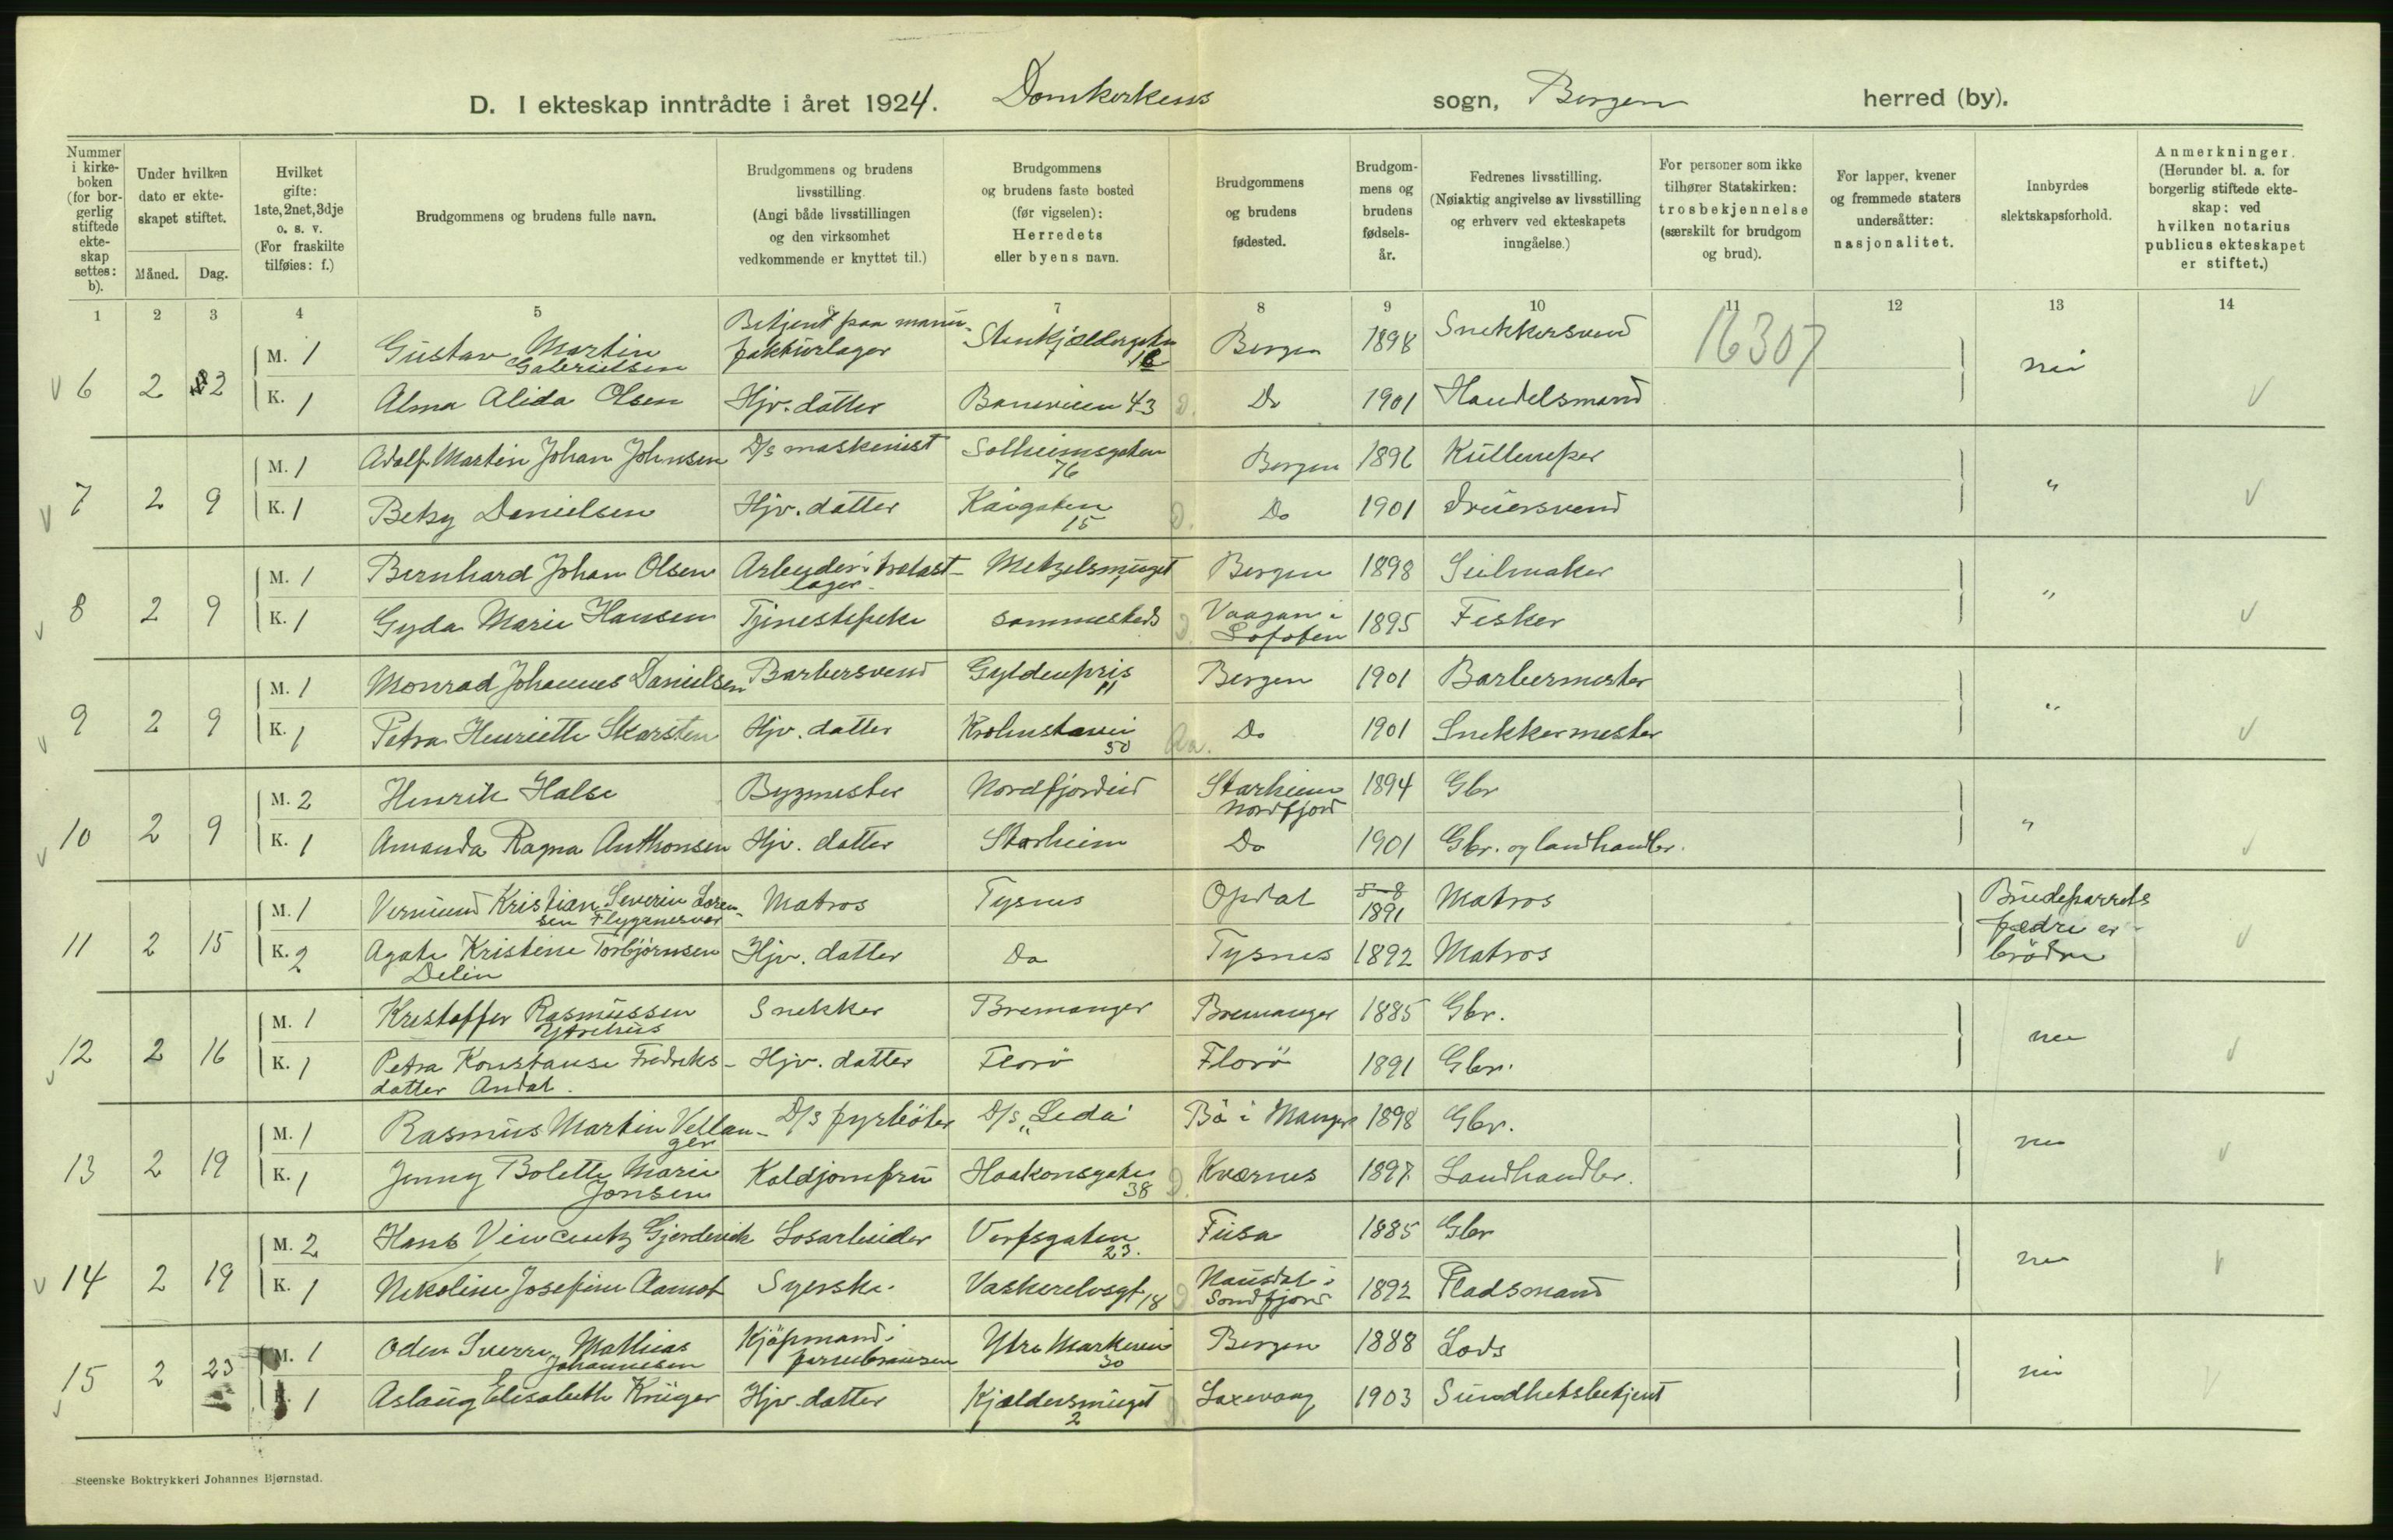 D. I ekteskap inntrådte i året 1924. Domkirkens sogn, Bergen herred (by).
Nummer i kirkeboken (for borgerlig stiftede ekteskap settes: b).
Under hvilken dato er ekteskapet stiftet.
Måned. Dag.
Hvilket gifte: 1ste, 2net, 3dje o. s. v. (For fraskilte tilføies: f.)
Brudgommens og brudens fulle navn.
Brudgommens og brudens livsstilling. (Angi både livsstillingen og den virksomhet vedkommende er knyttet til.)
Brudgommens og brudens faste bosted (før vigselen): Herredets eller byens navn.
Brudgommens og brudens fødested.
Brudgommens og brudens fødselsår.
Fedrenes livsstilling. (Nøiaktig angivelse av livsstilling og erhverv ved ekteskapets inngåelse.)
For personer som ikke tilhører Statskirken: trosbekjennelse (særskilt for brudgom og brud).
For lapper, kvener og fremmede staters undersåtter: nasjonalitet.
Innbyrdes slektskapsforhold.
Anmerkninger. (Herunder bl. a. for borgerlig stiftede ekteskap: ved hvilken notarius publicus ekteskapet er stiftet.)
1 2 3 4 5 6 7 8 9 10 11 12 13 14
6 2 2 M. 1 Gustav Martin Gabrielsen Betjent paa manufakturlager Stenkjældergaten Bergen 1898 Snekkersvend 16307 nei
K. 1 Alma Alida Olsen Hjv. datter Baneveien 43 D. Do 1901 Handelsmand
7 2 9 M. 1 Adolf Martin Johan Johnsen D/s maskinist Solheimsgaten 76 Bergen 1896 Kullemper "
K. 1 Betsy Danielsen Hjv. datter Kaigaten 15 D. Do 1901 Druersvend
8 2 9 M. 1 Bernhard Johan Olsen Arbeider i trælastlager Metzelsmuget Bergen 1898 Seilmaker "
K. 1 Gyda Marie Hansen Tjenestepike sammesteds D. Vaagan i Lofoten 1895 Fisker
9 2 9 M. 1 Monrad Johannes Danielsen Barbersvend Gyldenpris 11 Bergen 1901 Barbermester "
K. 1 Petra Henriette Skarsten Hjv. datter Krohnstavei 50 Aa. Do 1901 Snekkermester
10 2 9 M. 2 Henrik Halse Bygmester Nordfjordeid Starheim Nordfjord 1894 Gbr "
K. 1 Amanda Ragna Anthonsen Hjv. datter Starheim Do 1901 Gbr. og landhandler.
11 2 15 M. 1 Vermund Kristian Severin Lorensen Flyganesvær Matros Tysnes Opdal 5-8 1891 Matros Brudeparrets fædre er brødre
K. 2 Agate Kristine Torbjørnsen Delin Hjv. datter Do Tysnes 1892 Matros
12 2 16 M. 1 Kristoffer Rasmussen Ytrehus Snekker Bremanger Bremanger 1885 Gbr. nei
K. 1 Petra Konstanse Fredriksdatter Andal. Hjv. datter Florö Florö 1891 Gbr.
13 2 19 M. 1 Rasmus Martin Vellanger D/s fyrböter D/s "Leda" Bö i Manger 1898 Gbr. nei
K. 1 Jenny Bolette Marie Jonsen Koldjomfru Haakonsgaten 38 D. Kværnes 1897 Landhandler.
14 2 19 M. 2 Hans Vincentz Gjerdevik Losarbeider Verfsgaten 23. Fusa 1885 Gbr nei
K. 1 Nikoline Josefine Aamot Syerske. Vaskerelvsgt 18 D Naustdal i Söndfjord 1892 Pladsmand
15 2 23 M. 1 Oden Sverre Mathias Johannesen Kjöpmand i Ytre Markevei 30 Bergen 1888 Lods nei
K. 1 Aslaug Elisabeth Krüger Hjv. datter Kjældersmuget 2 D. Laxevaag 1903 Sundhetsbetjent
Steenske Boktrykkeri Johannes Bjørnstad.